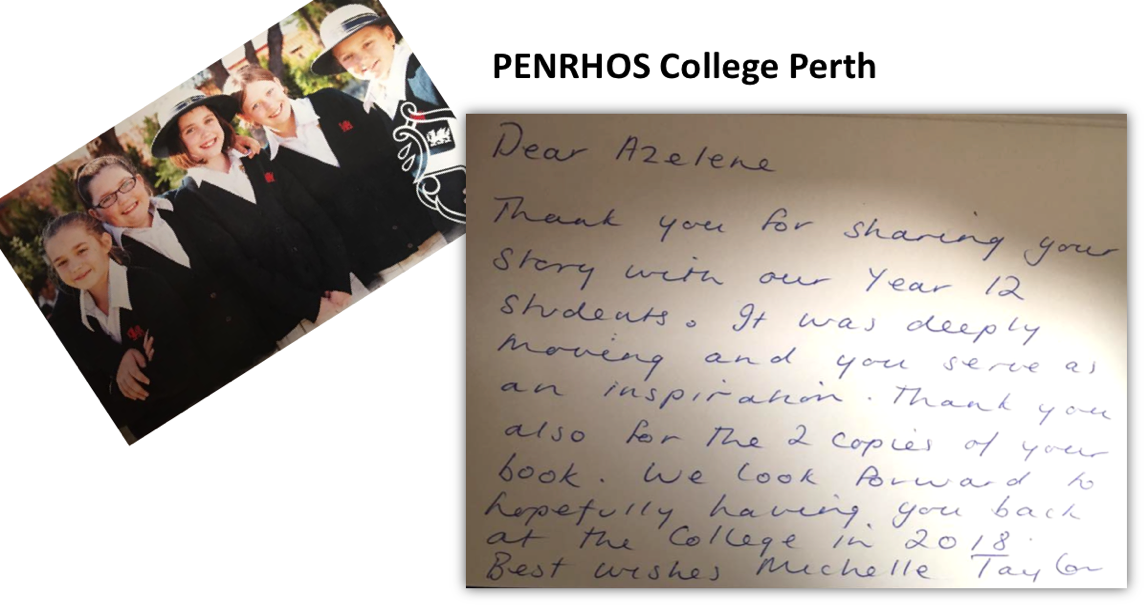 PENRHOS College Perth
Dear Azelene
Thank you for sharing your
story with our Year 12
students. It was deeply
moving and you serve as
an inspiration. Thank you
also for the 2 copies of your
book. We look forward to
hopefully having you back
at the College in 2018.
Best wishes Michelle Taylor